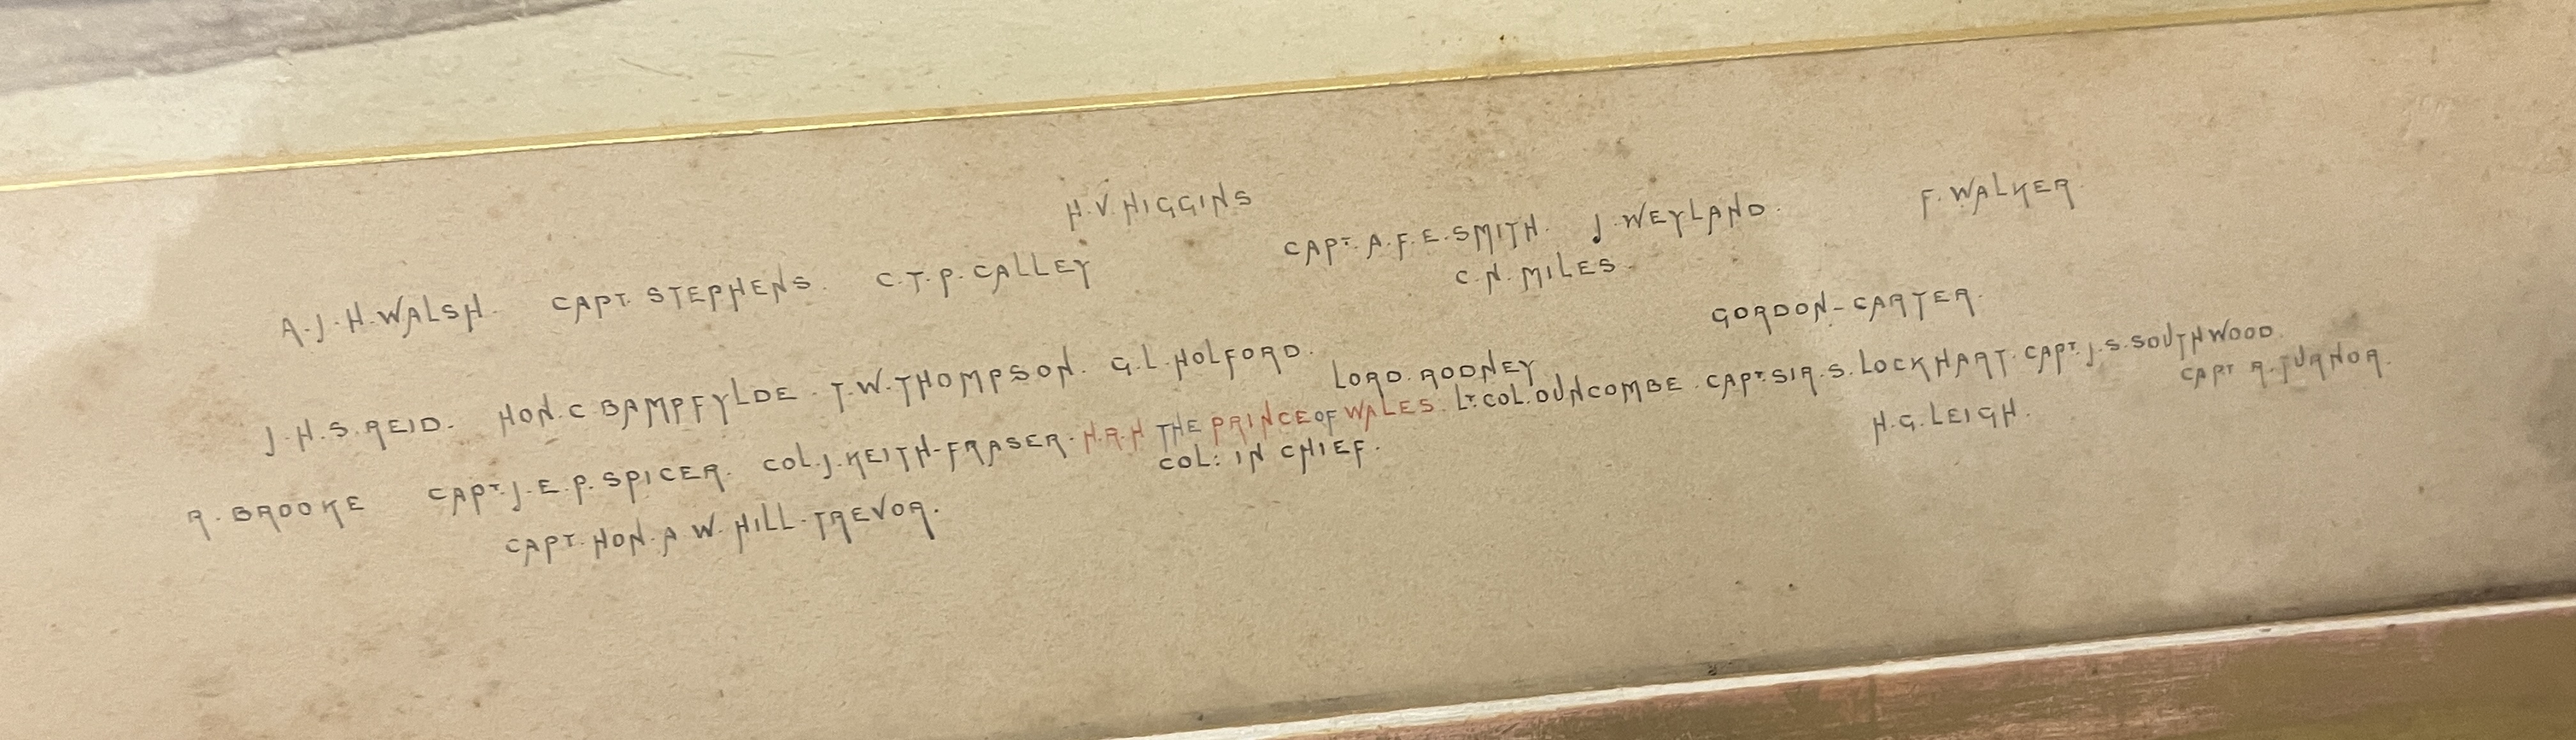 H.V. HIGGINS
A.J.H. WALSH. CAPT. STEPHENS. C.T.P. CALLEY CAPT. A.F.E. SMITH. J. WEYLAND. F. WALKER.
C.N. MILES.
GORDON-CARTER.
J.H.S. REID. HON. C. BAMPFYLDE. T.W. THOMPSON. G.L. HOLFORD.
LORD. RODNEY
R. BROOKE CAPT. J.E.P. SPICER. COL. J. KEITH-FRASER. H.R.H THE PRINCE OF WALES. LT. COL. DUNCOMBE. CAPT. SIR. S. LOCKHART. CAPT. J.S. SOUTHWOOD.
COL: IN CHIEF.
CAPT R. TURNOR.
CAPT. HON. A. W. HILL-TREVOR.
H.G. LEIGH.